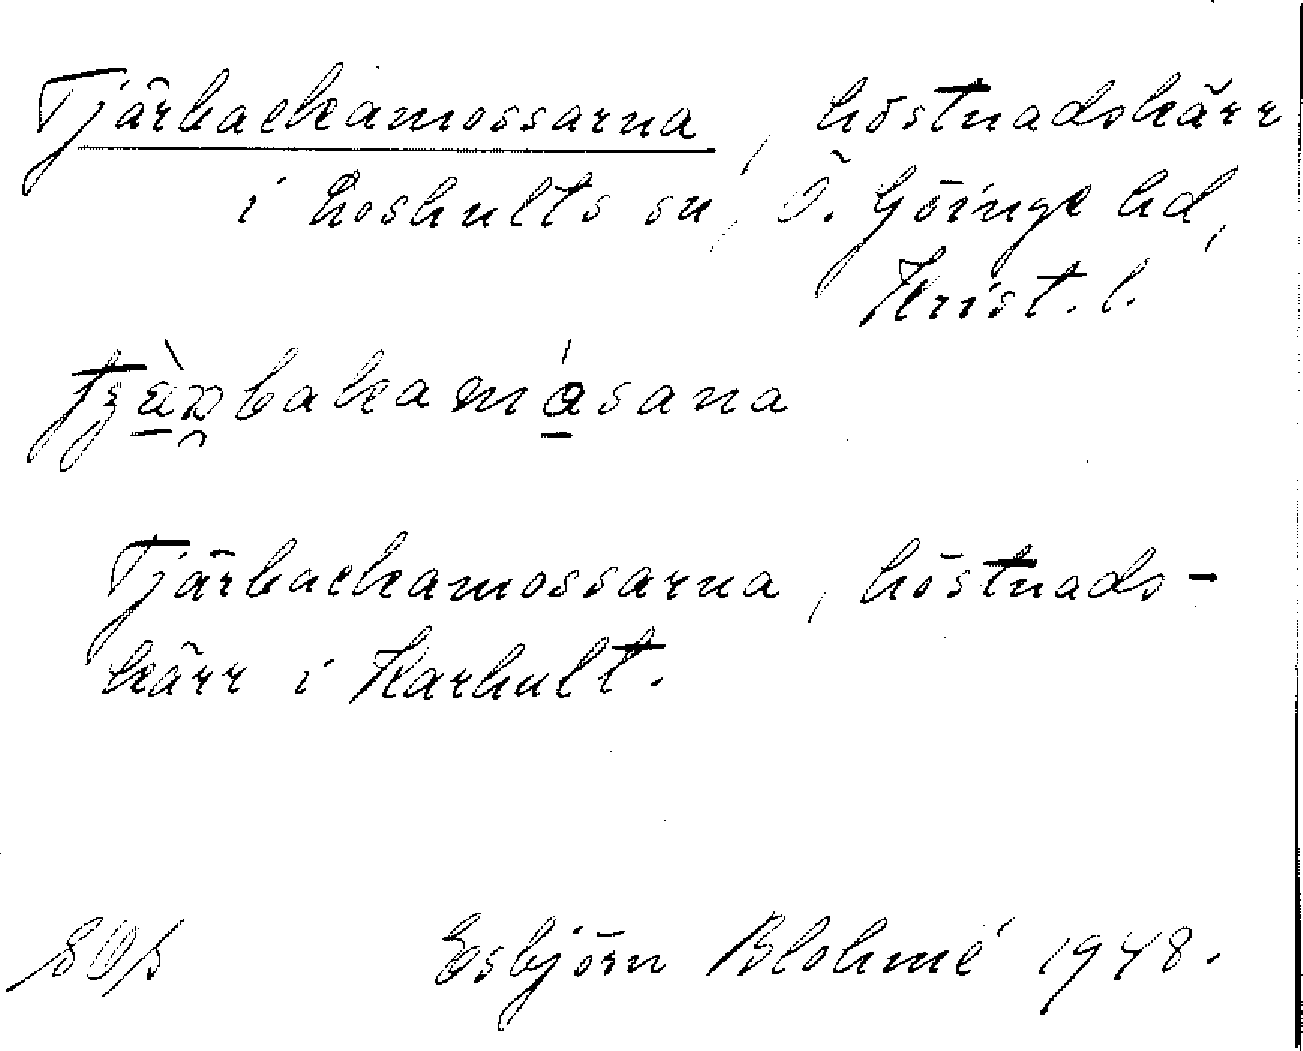 Tjärbackamossarna, höstnadskärr
i Loshults sn, Ö. Göinge hd,
Krist. l.
Tjärbackamossarna, höstnads-
kärr i Karhult.
Esbjörn Blohmé 1948.